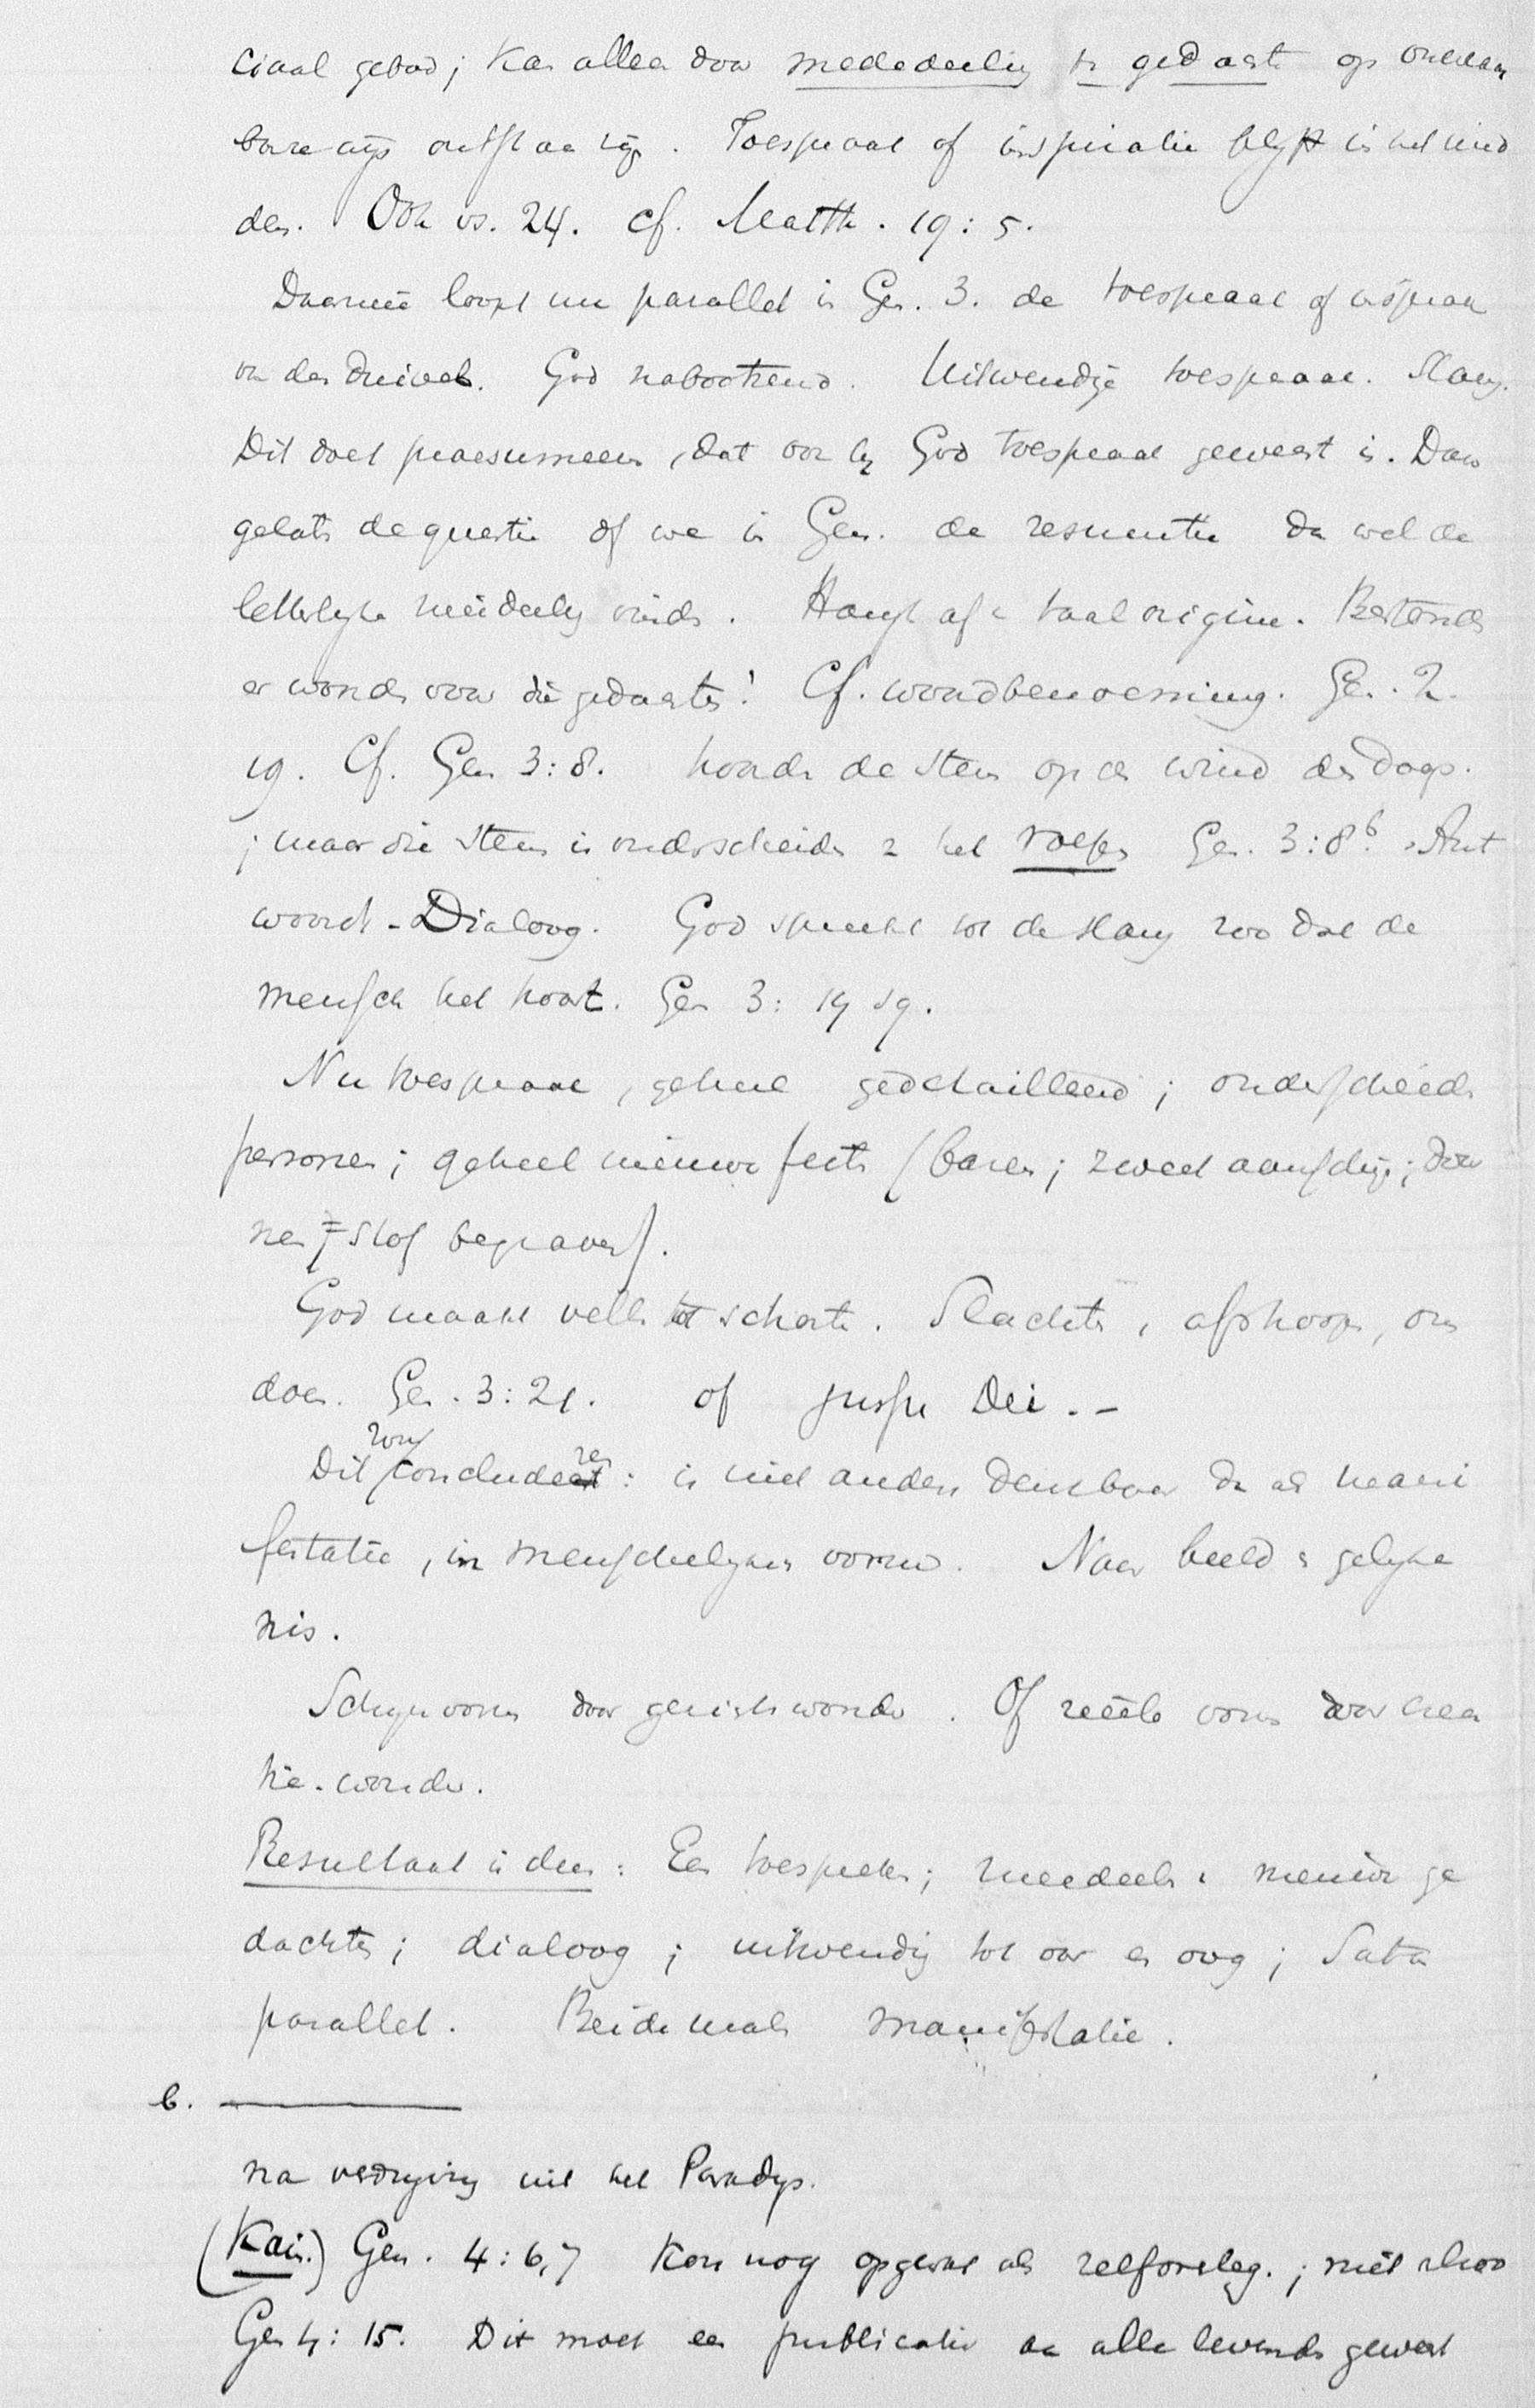 ciaal gebod; kan alleen door mededeeling v. gedacht. op onkenn
bare wijs ontstaan zijn. Toespraak of inspiratie blijft in het mid
den. Ook vs. 24. cf. Matth. 19:5.
Daarmeê loopt nu parallel in Gen. 3. de toespraak of inspraak
van den duivel. God nabootsend. Uitwendige toespraak. Slang.
Dit doet praesumeeren, dat ook by God toespraak geweest is. Dan
gelats de questie of we in Gen. de resumtie dan wel de
letterlyke meedeeling vinden. Hangt af v taal origine. Bestonden
er woorden voor die gedachten! Cf. woordbenoeming. Gen. 2.
19. Cf. Gen 3:8. hoorden de stem op de wind des daags.
; maar die stem is onderscheiden v het roepen Gen. 3:8b. Ant
woord - Dialoog. God spreekt tot de slang zoo dat de
mensch het hoort. Gen 3: 14 19.
Nu toespraak, geheel gedetailleerd; onderscheiden
personen; geheel nieuwe feiten (baren; zweet aanschijn; door
nen; stof begraven).
God maakt vellen tot schorten. Slachten, afstroopen, om
doen. Gen. 3:21. of jussu Dei. -
zou
Dit concludeeren: is niet anders denkbaar dan als mani
festatie, in menschelyken vorm. Naar beeld en gelyke
nis.
Schijnvorm door gezichtswonder. Of reëele vorm door crea
tie-wonder.
Resultaat is dus: Een toespreken; meedeelen v nieuwe ge
dachten; dialoog; uitwendig tot oor en oog; Satan
parallel. Beidemaal manifestatie.
b.
na verdryving uit het Paradys.
(Kain.) Gen. 4:6,7 Kon nog opgevat als zelfoverleg.; niet alzoo
Gen 4: 15. Dit moet een publicatie aan alle levenden geweest